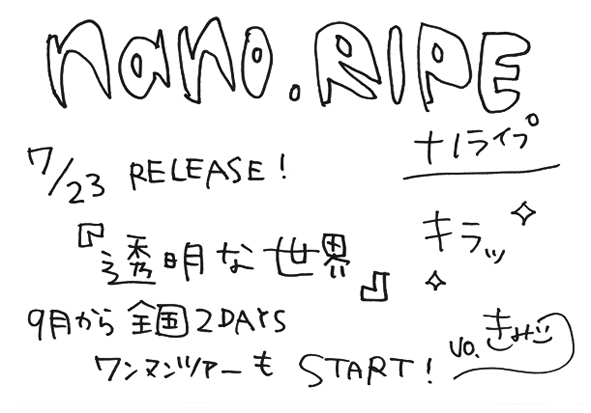 nano.RIPE
ナノライプ
7/23 RELEASE!
キラッ
『透明な世界』
9月から全国2DAYS
ワンマンツアーも START!
vo. きみコ